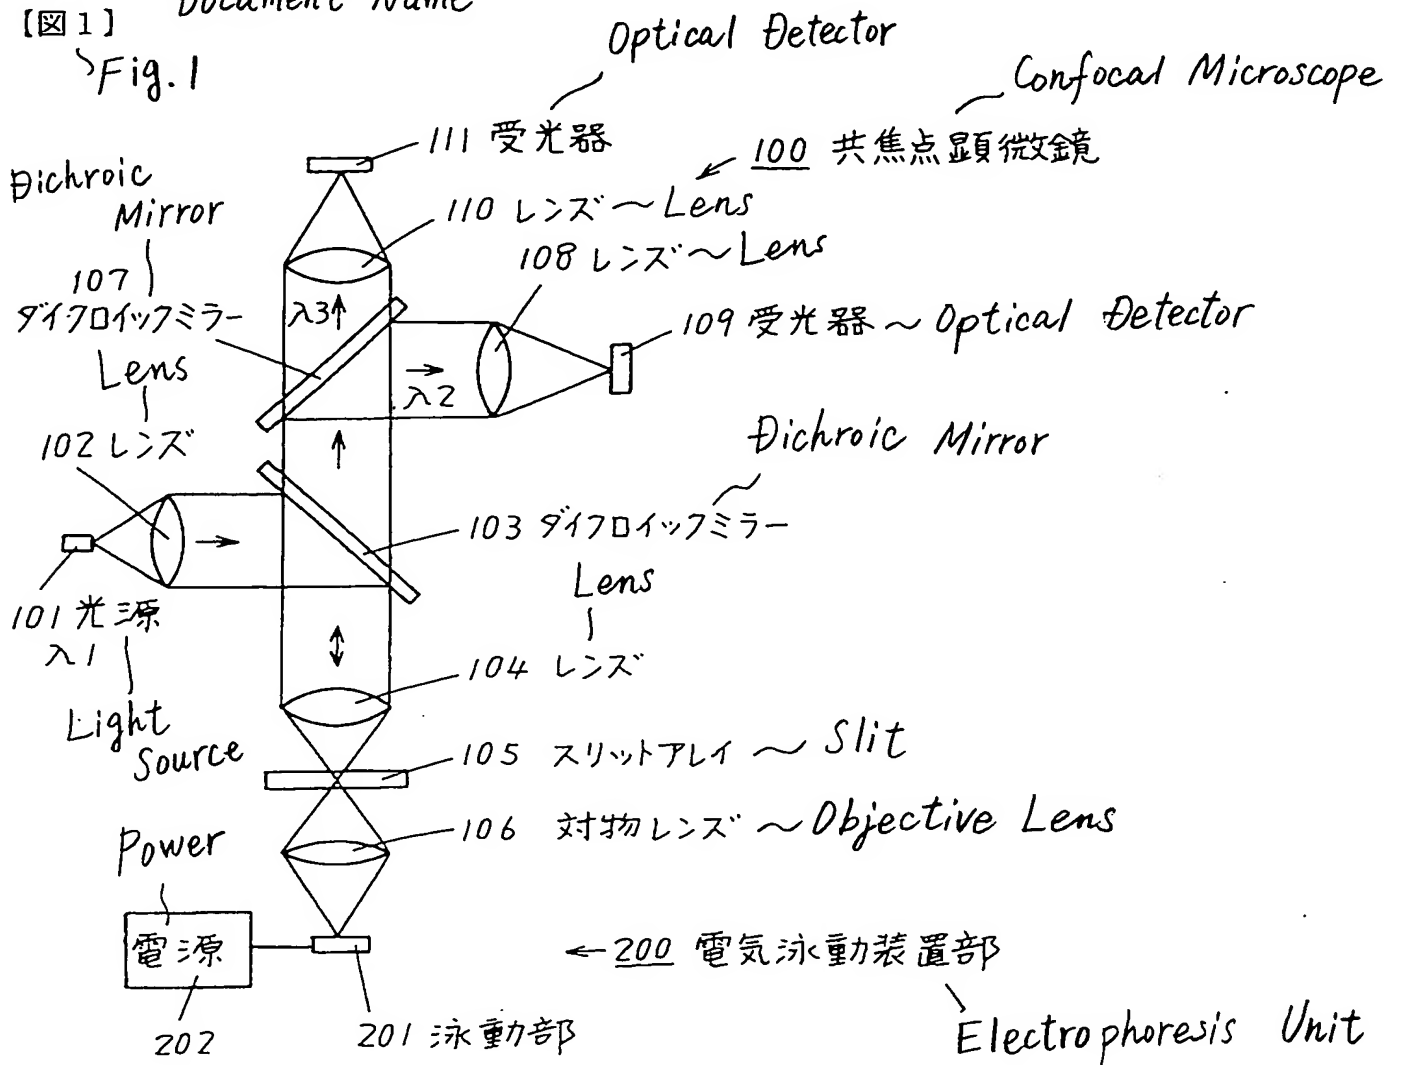 Document Name
【図1】
Fig.1
Optical Detector
Confocal Microscope
111 受光器
100 共焦点顕微鏡
Dichroic
Mirror
110 レンズ Lens
108 レンズ Lens
107
ダイクロイックミラー
λ3
109 受光器 Optical Detector
Lens
λ2
102 レンズ
Dichroic Mirror
103 ダイクロイックミラー
Lens
101 光源
λ1
104 レンズ
Light
Source
105 スリットアレイ Slit
106 対物レンズ Objective Lens
Power
電源
200 電気泳動装置部
202
201 泳動部
Electrophoresis Unit